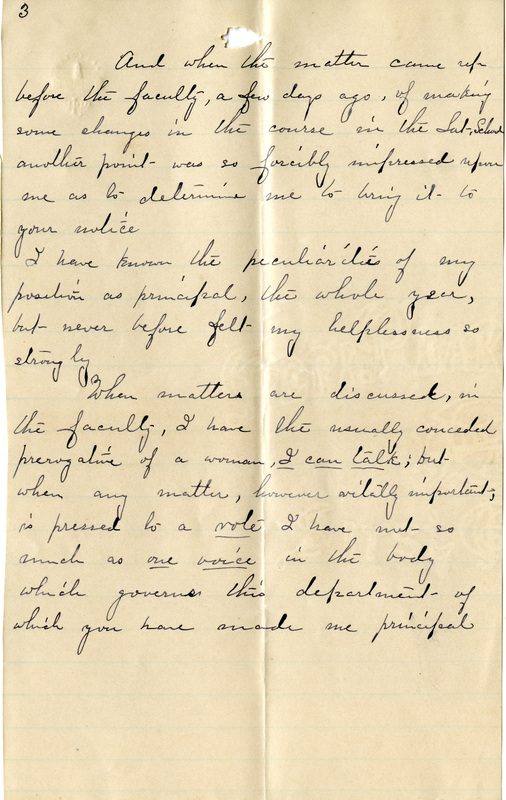 3
And when the matter came up
before the faculty, a few days ago, of making
some changes in the course in the Sat-School
another point was so forcibly impressed upon
me as to determine me to bring it to
your notice
I have known the peculiarities of my
position as principal, the whole year,
but never before felt my helplessness so
strongly
When matters are discussed, in
the faculty, I have the usually conceded
prerogative of a woman, I can talk; but
when any matter, however vitally important,
is pressed to a vote I have not so
much as one voice in the body
which governs this department of
which you have made me principal